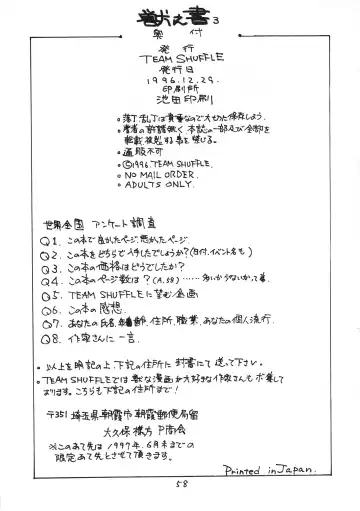 獣え書3
奥付
発行
TEAM SHUFFLE
発行日
1996.12.29.
印刷所
池田印刷
落丁、乱丁は貴重なので大切に保存しよう。
著者の許諾無く本誌の一部及び全部を
転載複製する事を禁じる。
通販不可
©1996.TEAM SHUFFLE.
NO MAIL ORDER.
ADULTS ONLY.
世界全国 アンケート調査
Q1. この本で良かったページ、悪かったページ
Q2. この本をどちらで入手したでしょうか?(日付、イベント名も)
Q3. この本の価格はどうでしたか?
Q4. この本のページ数は?(A.58)……
Q5. TEAM SHUFFLEに望む企画
Q6. この本の感想.
Q7. あなたの氏名、年齢、住所、職業、あなたの個人流行.
Q8. 作家さんに一言.
・以上を明記の上、下記の住所に封書にて送って下さい。
・TEAM SHUFFLEでは獣な漫画が大好きな作家さんも募集して
おります。こちらも下記の住所まで!
〒351 埼玉県朝霞市朝霞郵便局留
大久保様方 P商会
※このあて先は1997年6月末までの
限定あて先とさせて頂きます。
Printed in Japan.
58